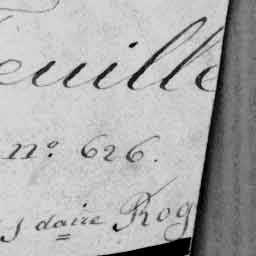 euille
nº. 626.
daire Rog